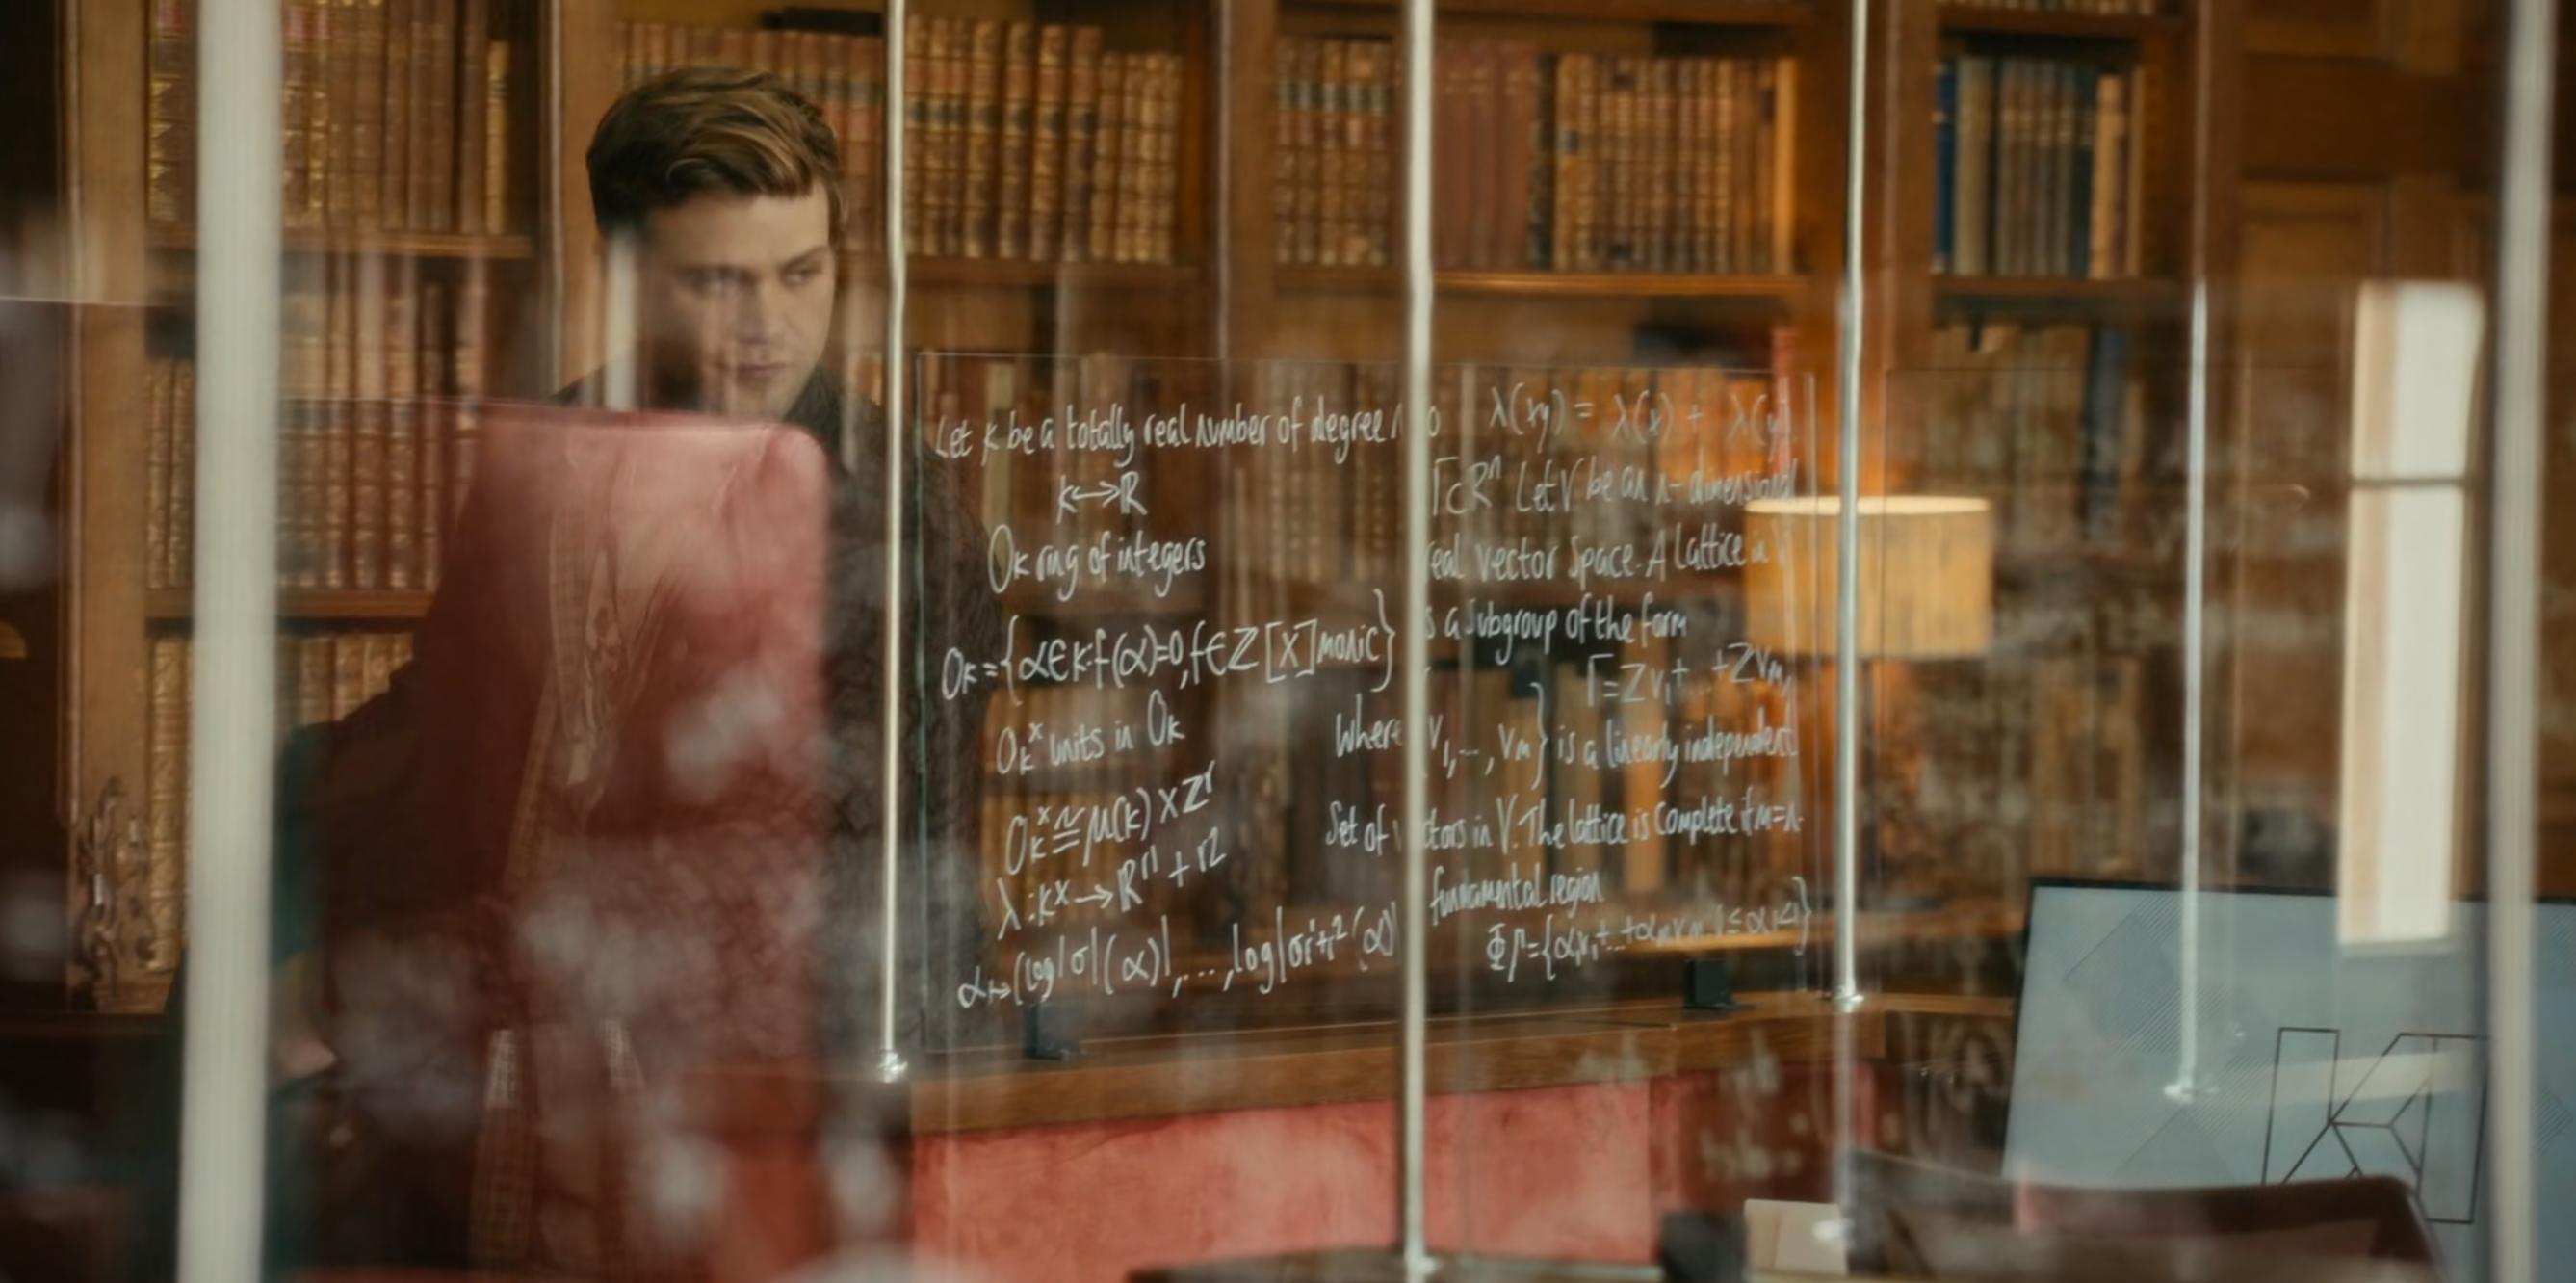 Let K be a totally real number of degree
K↔ℝ
Oκ ring of integers
Oκ={α∈K:f(α)=0,f∈Z[X]monic}
Oκˣ units in Oκ
Oκˣ≅μ(K)×Zʳ
λ:Kˣ→ℝʳ¹+ʳ²
α↦(log|σ1(α)|,...,log|σr+2(α)
λ(xy)=λ(x)+λ(y)
Γ⊂ℝⁿ Let V be an n-dimensional
real vector Space. A Lattice in
is a subgroup of the form
Γ=Zv₁+..+Zvₘ,
Where v₁,...,vₘ} is a linearly independent
Set of vectors in V. The lattice is complete if m=n.
fundamental region
ΦΓ={α₁v₁+..+αₘvₘ
KI